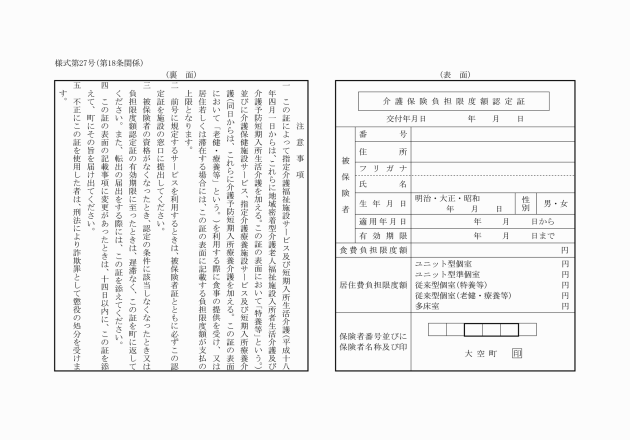 様式第27号(第18条関係)
(裏　面)
注　意　事　項
一　この証によって指定介護福祉施設サービス及び短期入所生活介護(平成十八
年四月一日からは、これらに地域密着型介護老人福祉施設入所者生活介護及び
介護予防短期入所生活介護を加える。この証の表面において「特養等」という。)
並びに介護保健施設サービス・指定介護療養施設サービス及び短期入所療養介
護(同日からは、これらに介護予防短期入所療養介護を加える。この証の表面
において「老健・療養等」という。)を利用する際に食事の提供を受け、又は
居住若しくは滞在する場合には、この証の表面に記載する負担限度額が支払の
上限となります。
二　前号に規定するサービスを利用するときは、被保険者証とともに必ずこの認
定証を施設の窓口に提出してください。
三　被保険者の資格がなくなったとき、認定の条件に該当しなくなったとき又は
負担限度額認定証の有効期限に至ったときは、遅滞なく、この証を町に返して
ください。また、転出の届出をする際には、この証を添えてください。
四　この証の表面の記載事項に変更があったときは、十四日以内に、この証を添
えて、町にその旨を届け出てください。
五　不正にこの証を使用した者は、刑法により詐欺罪として懲役の処分を受けま
す。
(表　面)
介護保険負担限度額認定証
交付年月日　　　　年　　月　　日
被保険者
番　　　号
住　　　所
フリガナ
氏　　　名
生年月日　明治・大正・昭和　　性別　男・女
年　　月　　日
適用年月日　　　　年　　月　　日から
有効期限　　　　年　　月　　日まで
食費負担限度額　　　　円
居住費負担限度額
ユニット型個室　　　　円
ユニット型準個室　　　　円
従来型個室(特養等)　　　　円
従来型個室(老健・療養等)　　　　円
多床室　　　　円
保険者番号並びに
保険者名称及び印
大空町　印